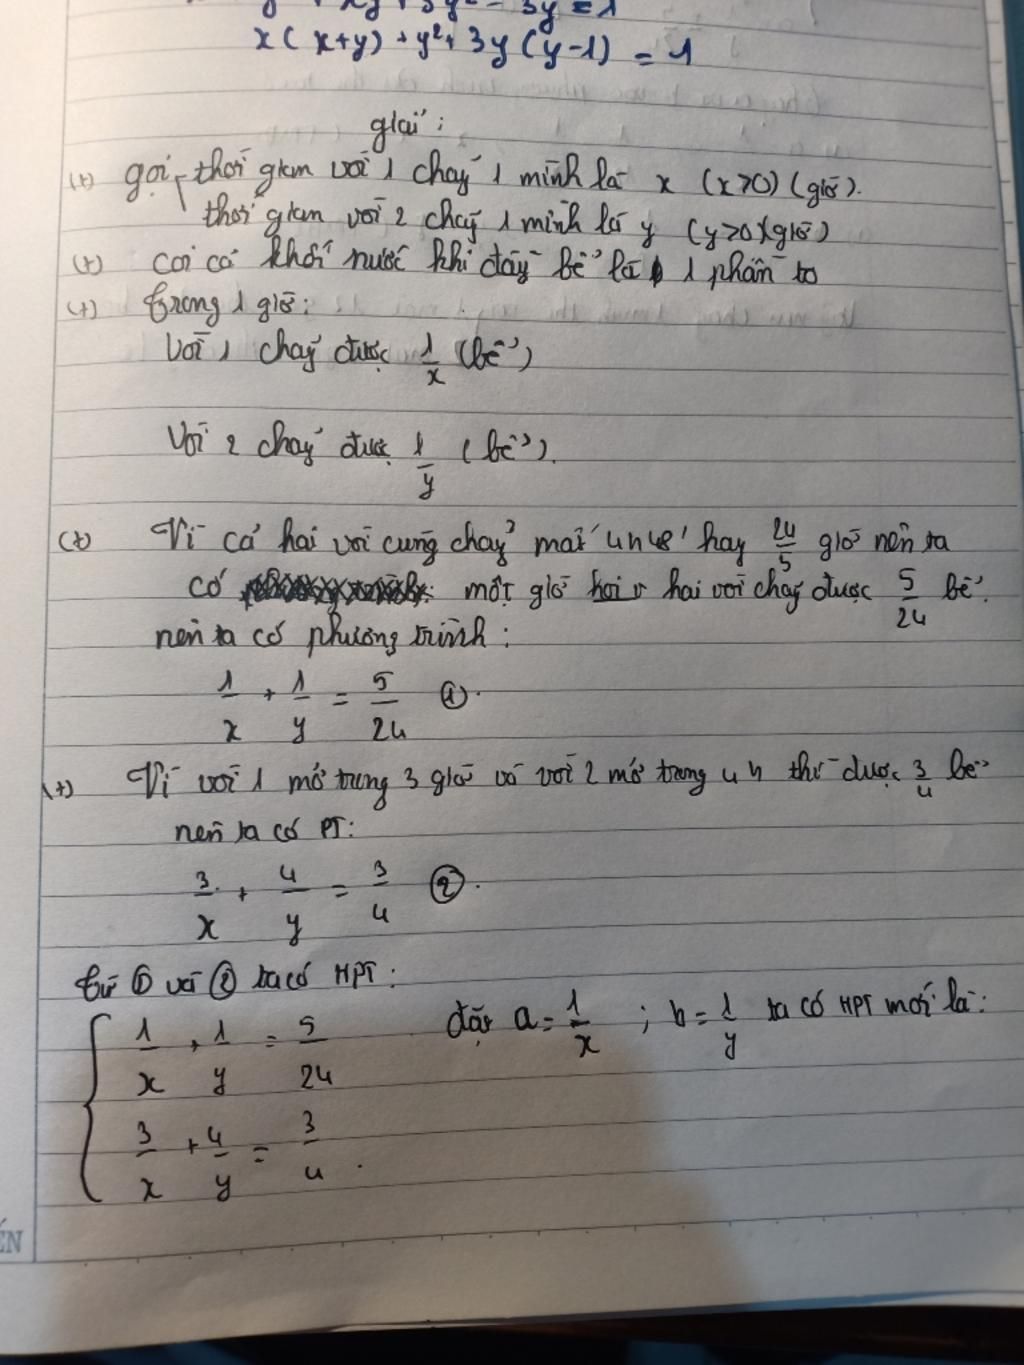 y² - 3y = 1
x(x+y) + y² + 3y(y-1) = 1
giải:
(+) gọi thời gian vòi 1 chảy 1 mình là x (x>0) (giờ).
thời gian vòi 2 chảy 1 mình là y (y>0)(giờ)
(+) coi cả khối nước khi đầy bể là 1 phần to
(+) trong 1 giờ:
Vòi 1 chảy được 1/x (bể)
Vòi 2 chảy được 1/y (bể).
(+) Vì cả hai vòi cùng chảy mất 4h48' hay 24/5 giờ nên ta
có một giờ hai vòi chảy được 5/24 bể.
nên ta có phương trình:
1/x + 1/y = 5/24 ①.
(+) Vì vòi 1 mở trong 3 giờ và vòi 2 mở trong 4h thì được 3/4 bể
nên ta có PT:
3/x + 4/y = 3/4 ②.
từ ① và ② ta có HPT:
{ 1/x + 1/y = 5/24 đặt a = 1/x ; b = 1/y ta có HPT mới là:
3/x + 4/y = 3/4.
ẾN